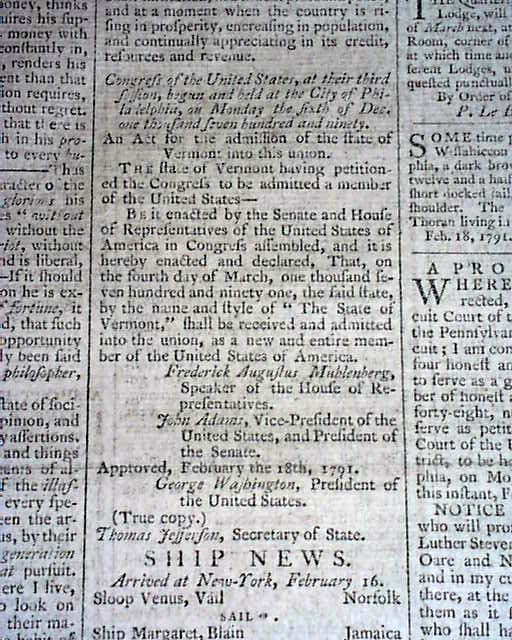 money, thinks
uires his sup-
money with
constantly in,
, renders his
ent than that
ion requires,
thout regret.
that there is
h in his pro-
to every hu-
—Thus
aracter o the
glorious his
es "without
without the
rist, without
nd is liberal,
—If it should
on he is ex-
fortune, it
d, that such
opportunity
ly been said
philosopher,
state of soci-
pinion, and
y assertions.
and things
eants of al-
f the illus-
every spe-
een the ar-
us, by their
generation
at pursuit.
ere I live,
o look on
their ma-
and at a moment when the country is ri-
sing in prosperity, encreasing in population,
and continually appreciating in its credit,
resources and revenue.
Congreſs of the United States, at their third
ſeſſion, begun and held at the City of Phi-
ladelphia, on Monday the ſixth of Dec.
one thouſand ſeven hundred and ninety.
An Act for the admiſſion of the ſtate of
Vermont into this union.
THE ſtate of Vermont having petition-
ed the Congreſs to be admitted a member
of the United States—
BE it enacted by the Senate and Houſe
of Repreſentatives of the United States of
America in Congreſs aſſembled, and it is
hereby enacted and declared, That, on
the fourth day of March, one thouſand ſe-
ven hundred and ninety one, the ſaid ſtate,
by the name and ſtyle of "The State of
Vermont," ſhall be received and admitted
into the union, as a new and entire mem-
ber of the United States of America.
Frederick Auguſtus Muhlenberg,
Speaker of the Houſe of Re-
preſentatives.
John Adams, Vice-Preſident of the
United States, and Preſident of
the Senate.
Approved, February the 18th, 1791.
George Waſhington, Preſident of
the United States.
(True copy.)
Thomas Jefferſon, Secretary of State.
SHIP NEWS.
Arrived at New-York, February 16.
Sloop Venus, Vail Norfolk
SAIL
Ship Margaret, Blain Jamaica
THE Quarter
Lodge, will
of March next, at
Room, corner of
at which time and
ferent Lodges, u
queſted punctuall
By Order of
P. Le B
SOME time p
Wiſſahiccon
phia, a dark brow
twelve and a half
ſhort docked tail,
ſhoulder. The
Thoran living in
Feb. 18, 1791.
A PRO
WHERE
rected,
cuit Court of t
the Pennſylvan
cuit; I am com
four honeſt an
to ſerve as a g
ber of honeſt a
forty-eight, n
ſerve as petit
Court of the U
trict, to be ho
phia, on Mo
this inſtant, F
NOTICE
who will pro
Luther Steven
Oare and N
and in my cu
there, at the
them as it ſ
who ſhall h